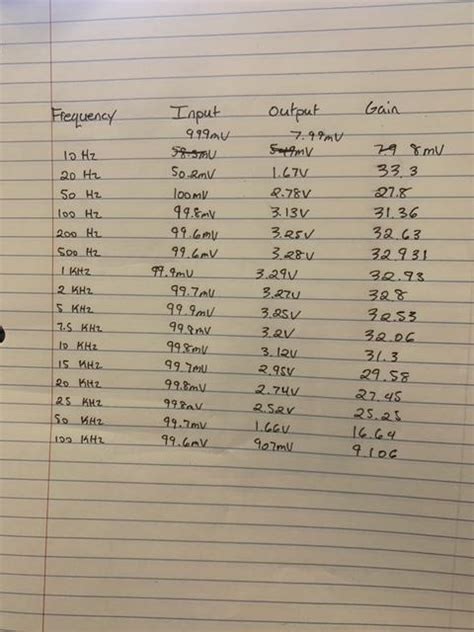 Frequency Input Output Gain
999mV 7.99mV
10 Hz 58.5mV 549mV 7.9 8mV
20 Hz 50.2mV 1.67V 33.3
50 Hz 100mV 2.78V 27.8
100 Hz 99.8mV 3.13V 31.36
200 Hz 99.6mV 3.25V 32.63
500 Hz 99.6mV 3.28V 32.931
1 KHz 99.9mV 3.29V 32.93
2 KHz 99.7mV 3.27V 32.8
5 KHz 99.9mV 3.25V 32.53
7.5 KHz 99.8mV 3.2V 32.06
10 KHz 99.8mV 3.12V 31.3
15 KHz 99.7mV 2.95V 29.58
20 KHz 99.8mV 2.74V 27.45
25 KHz 99.8mV 2.52V 25.25
50 KHz 99.7mV 1.66V 16.64
100 KHz 99.6mV 907mV 9.106